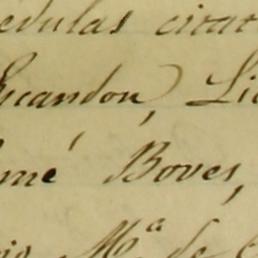 cedulas citat
Escandon, Lic
omé Boves,
Mª de